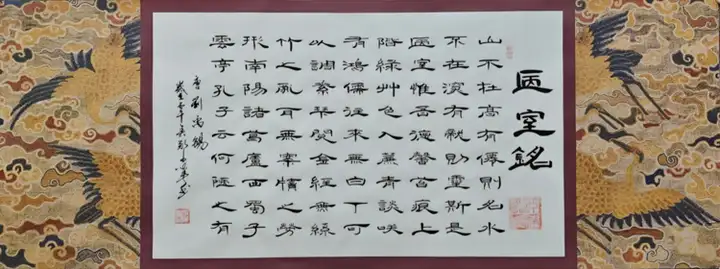 陋室銘
山不在高有僊則名水
不在深有龍則靈斯是
陋室惟吾德馨苔痕上
階綠艸色入簾青談咲
有鴻儒往來無白丁可
以調素琴閱金經無絲
竹之亂耳無案牘之勞
形南陽諸葛廬西蜀子
雲亭孔子云何陋之有
唐劉禹錫